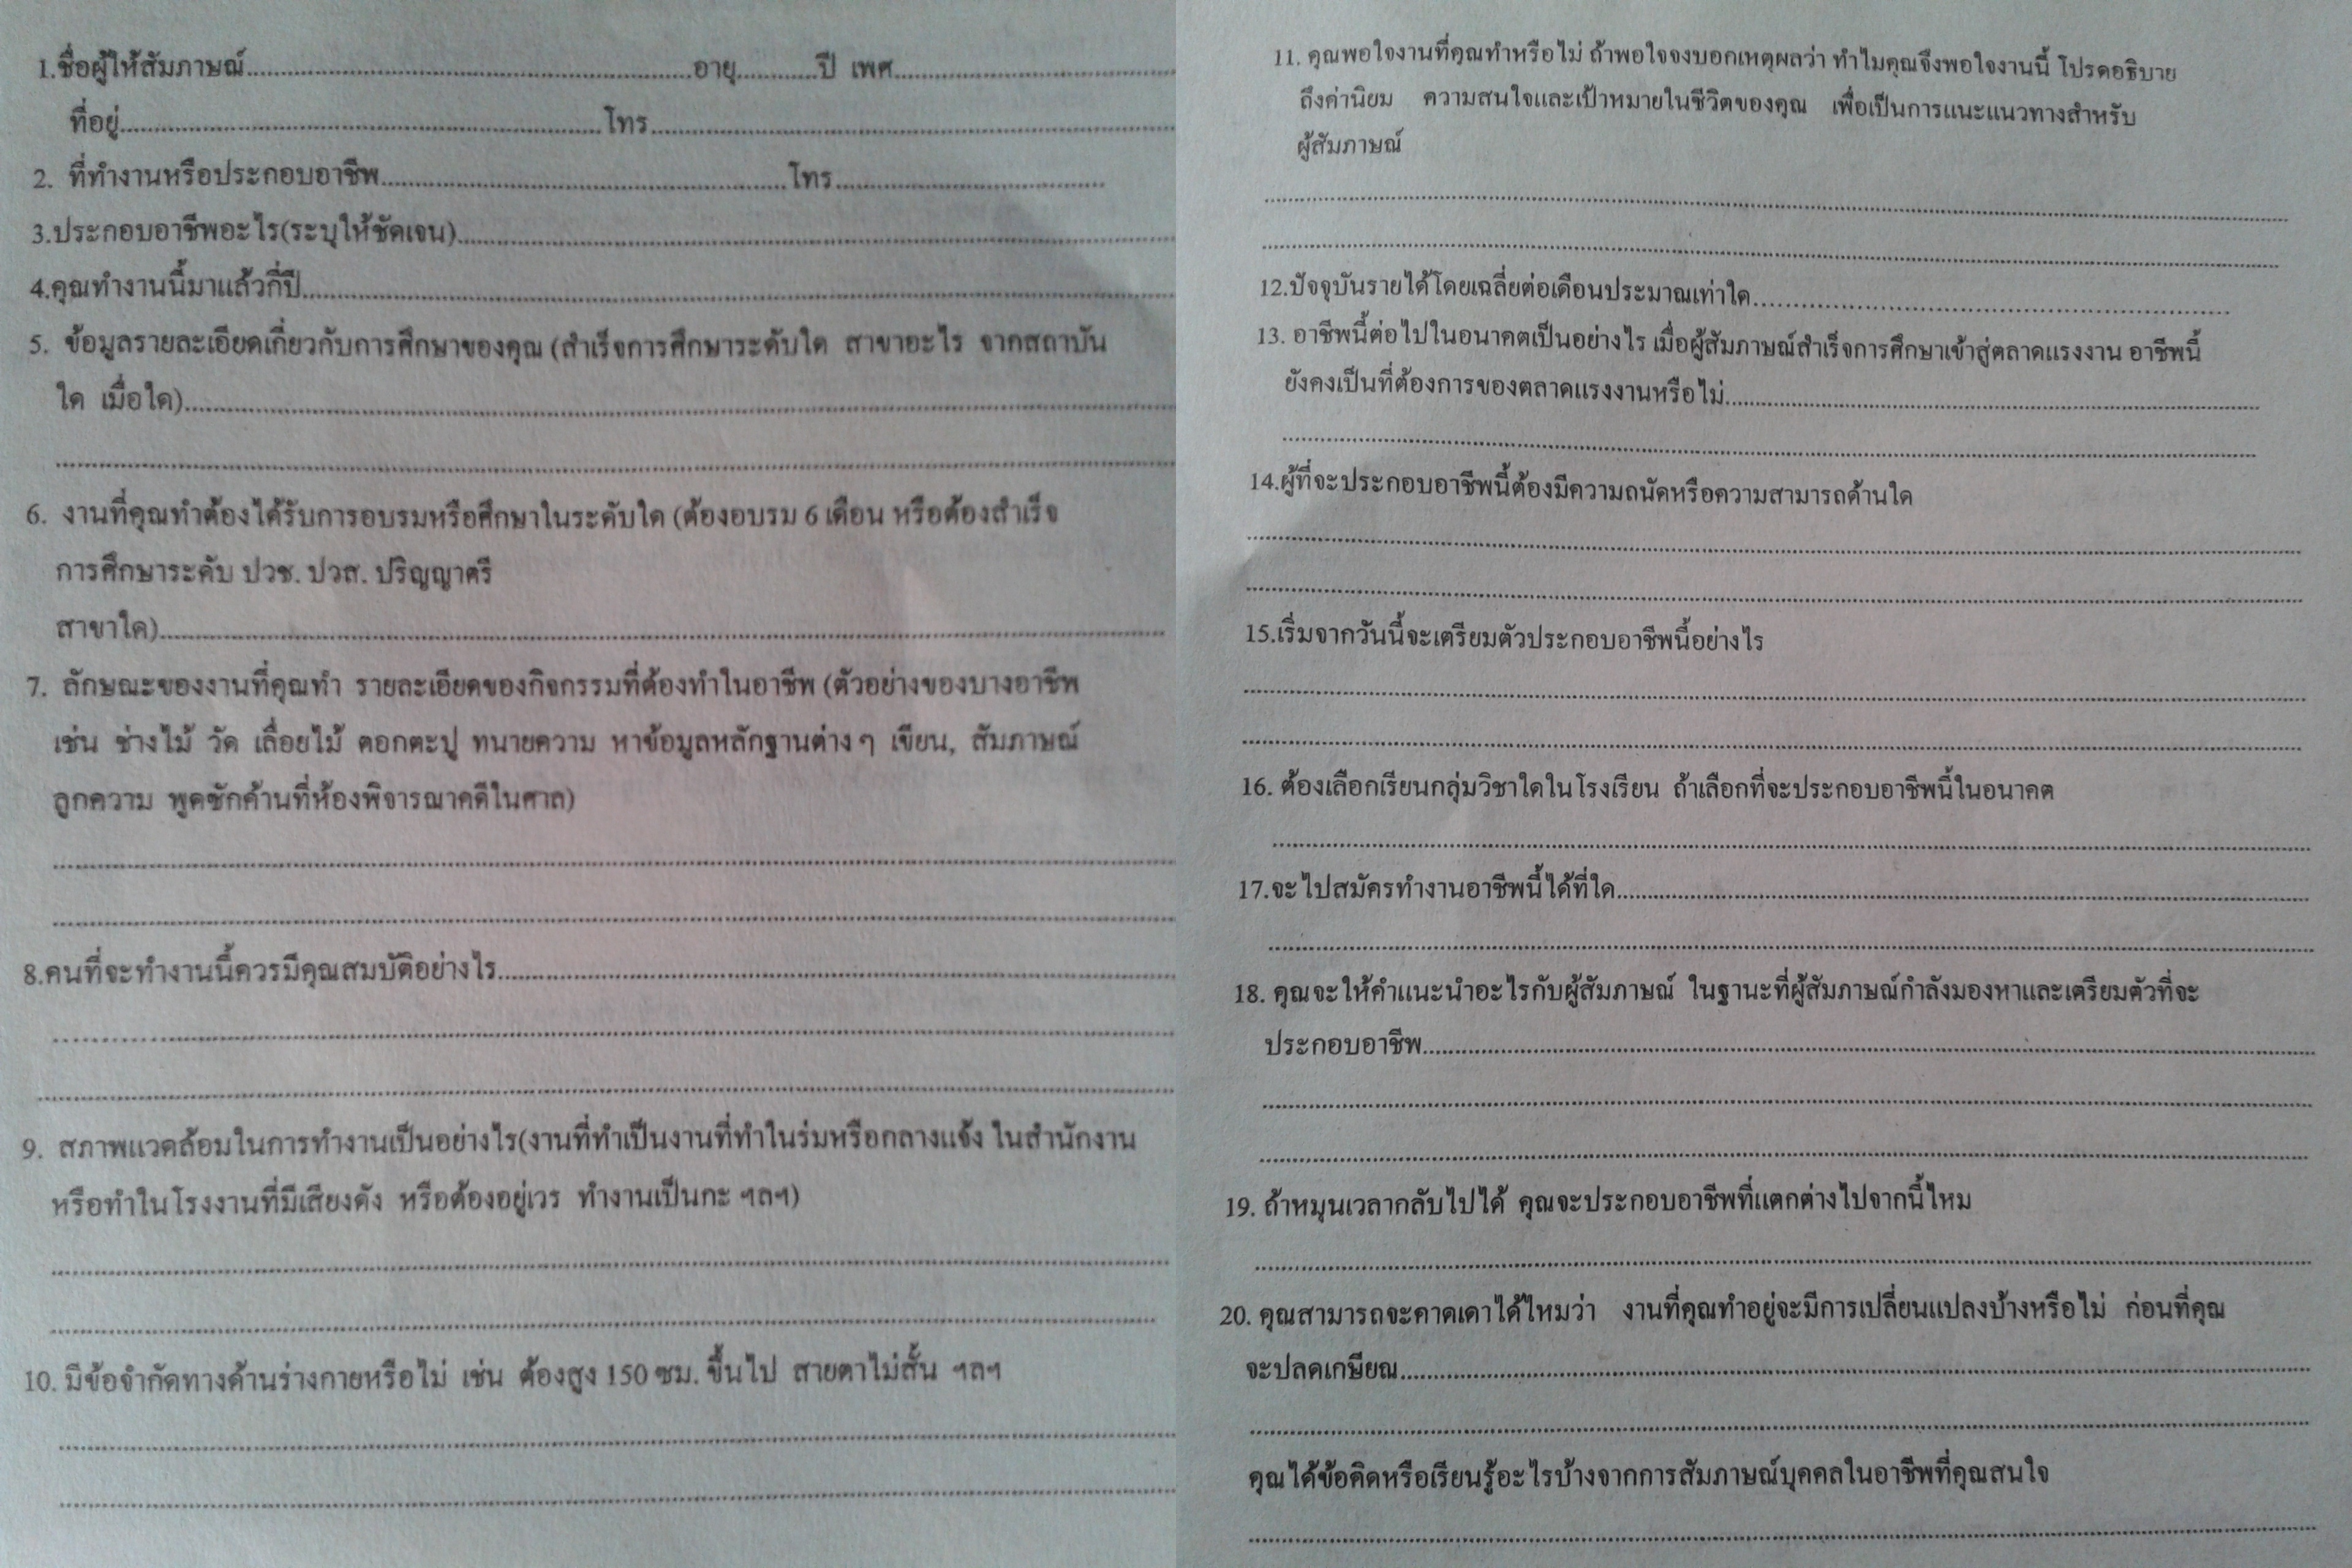 1.ชื่อผู้ให้สัมภาษณ์..............................อายุ............ปี เพศ..............................
ที่อยู่..............................โทร..............................
2. ที่ทำงานหรือประกอบอาชีพ..............................โทร..............................
3.ประกอบอาชีพอะไร(ระบุให้ชัดเจน)..............................
4.คุณทำงานนี้มาแล้วกี่ปี..............................
5. ข้อมูลรายละเอียดเกี่ยวกับการศึกษาของคุณ (สำเร็จการศึกษาระดับใด สาขาอะไร จากสถาบัน
ใด เมื่อใด)..............................
6. งานที่คุณทำต้องได้รับการอบรมหรือศึกษาในระดับใด (ต้องอบรม 6 เดือน หรือต้องสำเร็จ
การศึกษาระดับ ปวช. ปวส. ปริญญาตรี
สาขาใด)..............................
7. ลักษณะของงานที่คุณทำ รายละเอียดของกิจกรรมที่ต้องทำในอาชีพ (ตัวอย่างของบางอาชีพ
เช่น ช่างไม้ วัด เลื่อยไม้ ตอกตะปู ทนายความ หาข้อมูลหลักฐานต่าง ๆ เขียน, สัมภาษณ์
ลูกความ พูดซักค้านที่ห้องพิจารณาคดีในศาล)
8.คนที่จะทำงานนี้ควรมีคุณสมบัติอย่างไร..............................
9. สภาพแวดล้อมในการทำงานเป็นอย่างไร(งานที่ทำเป็นงานที่ทำในร่มหรือกลางแจ้ง ในสำนักงาน
หรือทำในโรงงานที่มีเสียงดัง หรือต้องอยู่เวร ทำงานเป็นกะ ฯลฯ)
10. มีข้อจำกัดทางด้านร่างกายหรือไม่ เช่น ต้องสูง 150 ซม. ขึ้นไป สายตาไม่สั้น ฯลฯ
11. คุณพอใจงานที่คุณทำหรือไม่ ถ้าพอใจจงบอกเหตุผลว่า ทำไมคุณจึงพอใจงานนี้ โปรดอธิบาย
ถึงค่านิยม ความสนใจและเป้าหมายในชีวิตของคุณ เพื่อเป็นการแนะแนวทางสำหรับ
ผู้สัมภาษณ์
12.ปัจจุบันรายได้โดยเฉลี่ยต่อเดือนประมาณเท่าใด..............................
13. อาชีพนี้ต่อไปในอนาคตเป็นอย่างไร เมื่อผู้สัมภาษณ์สำเร็จการศึกษาเข้าสู่ตลาดแรงงาน อาชีพนี้
ยังคงเป็นที่ต้องการของตลาดแรงงานหรือไม่..............................
14.ผู้ที่จะประกอบอาชีพนี้ต้องมีความถนัดหรือความสามารถด้านใด
15.เริ่มจากวันนี้จะเตรียมตัวประกอบอาชีพนี้อย่างไร
16. ต้องเลือกเรียนกลุ่มวิชาใดในโรงเรียน ถ้าเลือกที่จะประกอบอาชีพนี้ในอนาคต
17.จะไปสมัครทำงานอาชีพนี้ได้ที่ใด..............................
18. คุณจะให้คำแนะนำอะไรกับผู้สัมภาษณ์ ในฐานะที่ผู้สัมภาษณ์กำลังมองหาและเตรียมตัวที่จะ
ประกอบอาชีพ..............................
19. ถ้าหมุนเวลากลับไปได้ คุณจะประกอบอาชีพที่แตกต่างไปจากนี้ไหม
20. คุณสามารถจะคาดเดาได้ไหมว่า งานที่คุณทำอยู่จะมีการเปลี่ยนแปลงบ้างหรือไม่ ก่อนที่คุณ
จะปลดเกษียณ..............................
คุณได้ข้อคิดหรือเรียนรู้อะไรบ้างจากการสัมภาษณ์บุคคลในอาชีพที่คุณสนใจ